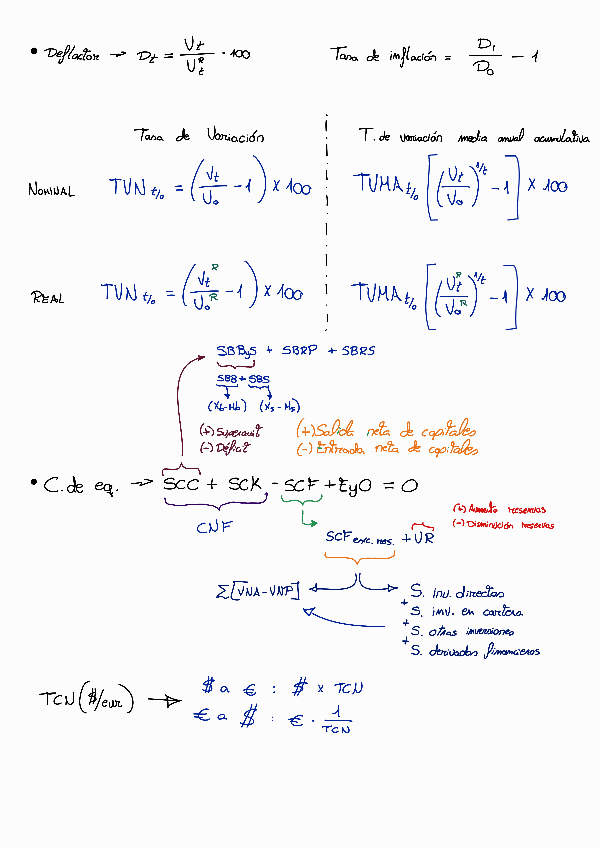 • Deflactor → Dt = Vt / Vt^R · 100
Tasa de inflación = D1 / D0 − 1
Tasa de Variación
T. de variación media anual acumulativa
NOMINAL
TVN t/o = (Vt / Vo − 1) × 100
TVMA t/o [(Vt / Vo)^1/t − 1] × 100
REAL
TVN t/o = (Vt^R / Vo^R − 1) × 100
TVMA t/o [(Vt^R / Vo^R)^1/t − 1] × 100
SBByS + SBRP + SBRS
SBB + SBS
(Xb - Mb) (Xs - Ms)
(+) Superavit
(-) Déficit
(+) Salida neta de capitales
(-) Entrada neta de capitales
• C. de eq. → SCC + SCK - SCF + EyO = 0
CNF
(+) Aumento reservas
(-) Disminución reservas
SCF exc. res. + VR
Σ[VNA-VNP]
S. inv. directas
+ S. inv. en cartera
+ S. otras inversiones
+ S. derivados financieros
TCN ($/eur) →
$ a € : $ × TCN
€ a $ : € · 1 / TCN